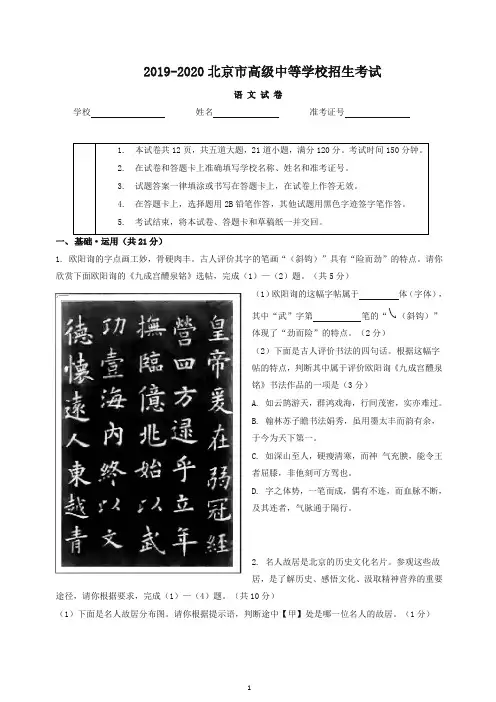 2019-2020北京市高级中等学校招生考试
语 文 试 卷
学校 姓名 准考证号
1. 本试卷共12页，共五道大题，21道小题，满分120分。考试时间150分钟。
2. 在试卷和答题卡上准确填写学校名称、姓名和准考证号。
3. 试题答案一律填涂或书写在答题卡上，在试卷上作答无效。
4. 在答题卡上，选择题用2B铅笔作答，其他试题用黑色字迹签字笔作答。
5. 考试结束，将本试卷、答题卡和草稿纸一并交回。
一、基础·运用（共21分）
1. 欧阳询的字点画工妙，骨硬肉丰。古人评价其字的笔画“（斜钩）”具有“险而劲”的特点。请你
欣赏下面欧阳询的《九成宫醴泉铭》选帖，完成（1）—（2）题。（共5分）
皇帝爰在弱冠經
營四方逯乎立年
撫臨億兆始以武
功壹海內終以文
德懷遠人東越青
（1）欧阳询的这幅字帖属于 体(字体)，
其中“武”字第 笔的“（斜钩）”
体现了“劲而险”的特点。（2分）
（2）下面是古人评价书法的四句话。根据这幅字
帖的特点，判断其中属于评价欧阳询《九成宫醴泉
铭》书法作品的一项是（3分）
A. 如云鹄游天，群鸿戏海，行间茂密，实亦难过。
B. 翰林苏子瞻书法娟秀，虽用墨太丰而韵有余，
于今为天下第一。
C. 如深山至人，硬瘦清寒，而神 气充腴，能令王
者屈膝，非他刻可方驾也。
D. 字之体势，一笔而成，偶有不连，而血脉不断，
及其连者，气脉通于隔行。
2. 名人故居是北京的历史文化名片。参观这些故
居，是了解历史、感悟文化、汲取精神营养的重要
途径。请你根据要求，完成（1）—（4）题。（共10分）
（1）下面是名人故居分布图。请你根据提示语，判断途中【甲】处是哪一位名人的故居。（1分）
1